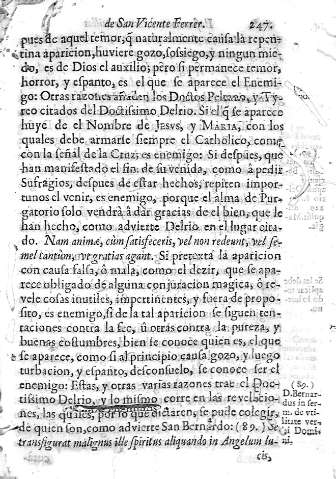 de San Vicente Ferrer. 247.
pues de aquel temor, q̃ naturalmente causa la repen-
tina aparicion, huviere gozo, sossiego, y ningun mie-
do, es de Dios el auxilio; pero si permanece temor,
horror, y espanto, es el que se aparece el Enemi-
go: Otras razones añaden los Doctos Peltano, y Ty-
reo citados del Doctissimo Delrio. Si el q̃ se aparece
huye de el Nombre de JESVS, y MARIA, con los
quales debe armarse siempre el Catholico, como
con la señal de la Cruz; es enemigo: Si despues, que
han manifestado el fin de su venida, como à pedir
Sufragios, despues de estar hechos, repiten impor-
tunos el venir, es enemigo, porque el alma de Pur-
gatorio solo vendrà à dàr gracias de el bien, que le
han hecho, como advierte Delrio en el lugar cita-
do. Nam animæ, cùm satisfeceris, vel non redeunt, vel se-
mel tantùm, ve gratias agant. Si pretexta la aparicion
con causa falsa, ò mala, como el dezir, que se apa-
rece obligado de alguna conjuracion magica, ò re-
vele cosas inutiles, impertinentes, y fuera de propo-
sito, es enemigo, si de la tal aparicion se siguen ten-
taciones contra la fee, ù otras contra la pureza, y
buenas costumbres, bien se conoce quien es, el que
se aparece, como si al principio causa gozo, y luego
turbacion, y espanto, desconsuelo, se conoce ser el
enemigo: Estas, y otras varias razones trae el Doc-
tissimo Delrio, y lo mismo corre en las revelacio-
nes, las quales, por lo que dictaren, se pude colegir,
de quien son, como advierte San Bernardo: (89.) Se
transfigurat malignus ille spiritus aliquando in Angelum lu-
cis,
(89.)
D. Bernar-
dus in ser-
m. de